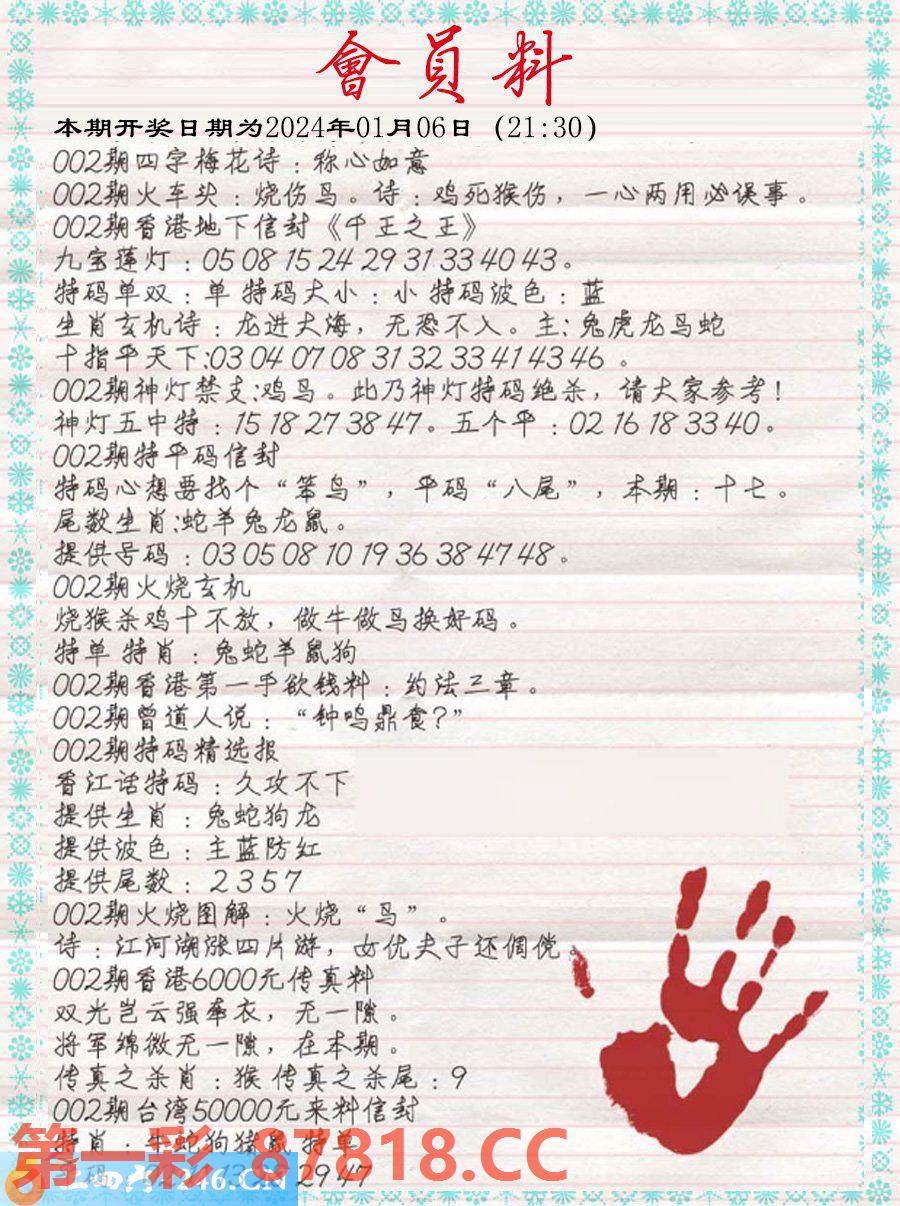 會員料
本期开奖日期为2024年01月06日（21:30）
002期四字梅花诗：称心如意
002期火车头：烧伤鸟。诗：鸡死猴伤，一心两用必误事。
002期香港地下信封《千王之王》
九宝莲灯：05 08 15 24 29 31 33 40 43。
特码单双：单 特码大小：小 特码波色：蓝
生肖玄机诗：龙进大海，无恐不入。主:兔虎龙马蛇
十指平天下:03 04 07 08 31 32 33 41 43 46 。
002期神灯禁支:鸡鸟。此乃神灯特码绝杀，请大家参考！
神灯五中特：15 18 27 38 47。五个平：02 16 18 33 40 。
002期特平码信封
特码心想要找个“笨鸟”，平码“八尾”，本期：十七。
尾数生肖:蛇羊兔龙鼠。
提供号码：03 05 08 10 19 36 38 47 48 。
002期火烧玄机
烧猴杀鸡十不放，做牛做马换好码。
特单 特肖：兔蛇羊鼠狗
002期香港第一手欲钱料：约法三章。
002期曾道人说：“钟鸣鼎食？”
002期特码精选报
香江话特码：久攻不下
提供生肖：兔蛇狗龙
提供波色：主蓝防红
提供尾数：2 3 5 7
002期火烧图解：火烧“鸟”。
诗：江河湖涨四片游，女优夫子还倜傥。
002期香港6000元传真料
双光岂云强牵衣，无一隙。
将军绵微无一隙，在本期。
传真之杀肖：猴 传真之杀尾：9
002期台湾50000元来料信封
特肖：牛蛇狗猪鼠 特单
第一彩 87818.CC
246.CN
13 29 47